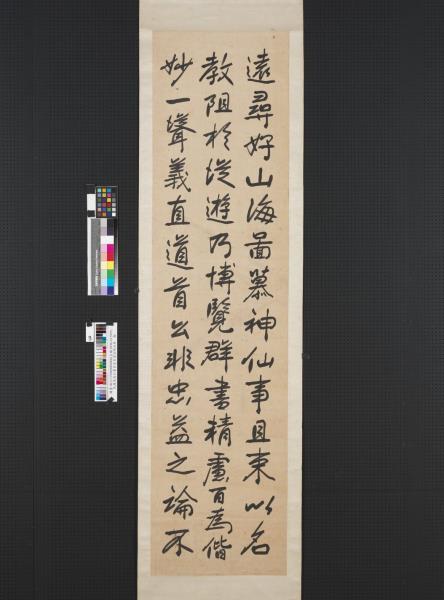 遠尋好山海啚慕神仙事且束以名
教阻於從遊乃博覽群書精慮百為偕
妙一聳義直道首公非忠益之論不